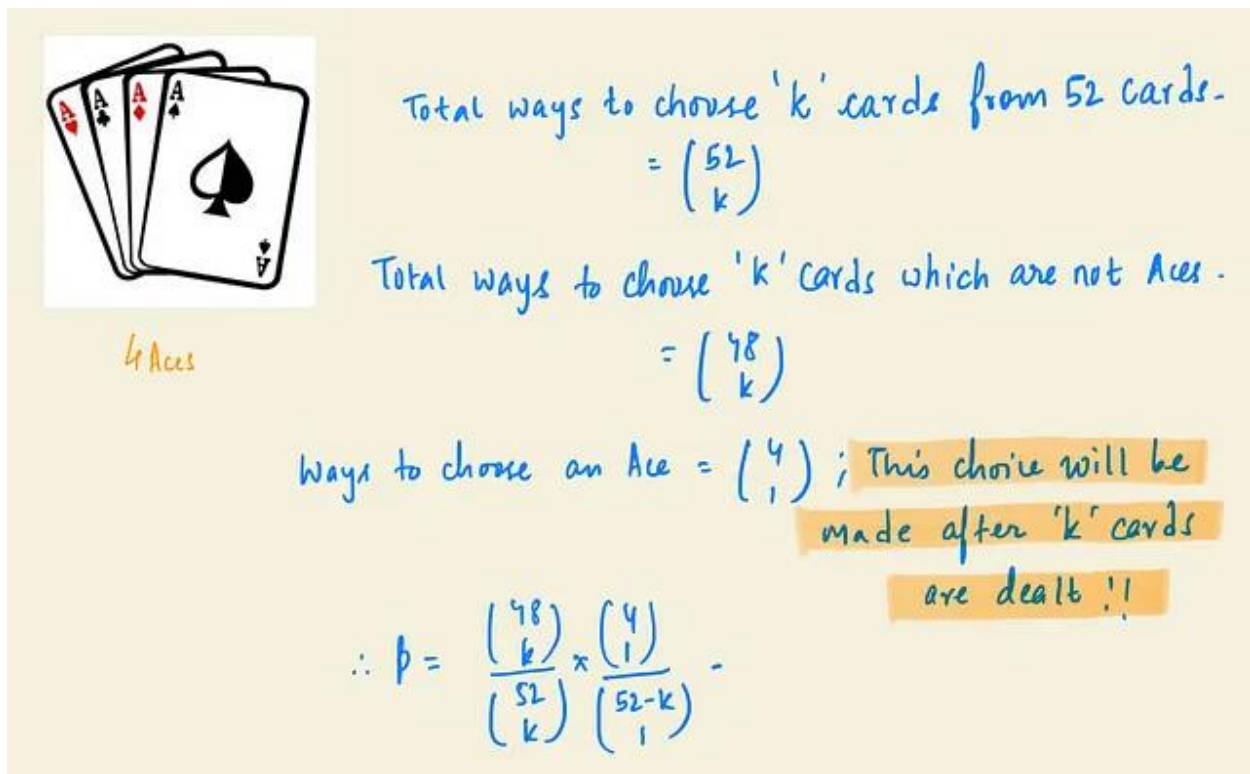 A A A A
A
Total ways to choose 'k' cards from 52 cards.
= (52 k)
Total ways to choose 'k' cards which are not Aces.
= (48 k)
4 Aces
Ways to choose an Ace = (4 1) ; This choice will be
made after 'k' cards
are dealt !!
∴ p = (48 k) / (52 k) × (4 1) / (52-k 1) .